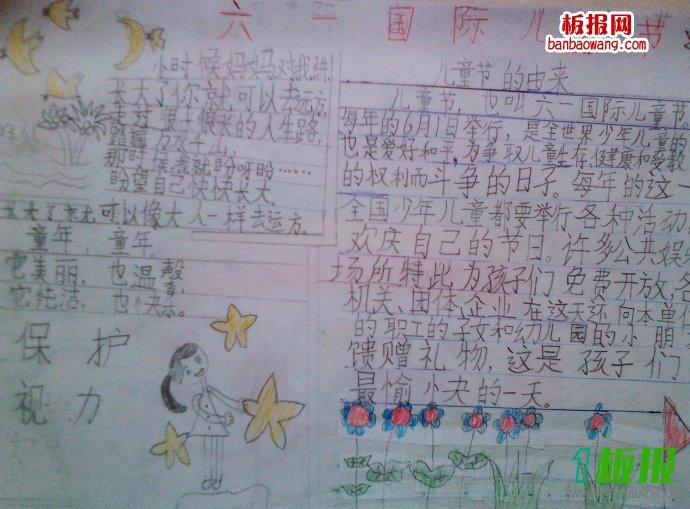 六一国际儿童节
板报网
banbaowang.com
小时候妈妈对我讲,
长大了你就可以去远方,
走过很长很长的人生路,
踏遍万水千山,
那时侯我就盼呀盼……
盼望自己快快长大,
长大了就可以像大人一样去远方。
童年,童年,
它美丽,也温馨
它纯洁,也快乐。
保护
视力
儿童节的由来
儿童节,也叫六一国际儿童节
每年的6月1日举行,是全世界少年儿童的
也是爱好和平,为争取儿童生存、健康和受教
的权利而斗争的日子。每年的这一
全国少年儿童都要举行各种活动
欢庆自己的节日。许多公共娱
场所特此为孩子们免费开放,各
机关、团体、企业在这天还向本单
的职工的子女和幼儿园的小朋
馈赠礼物,这是孩子们
最愉快的一天。
1板报